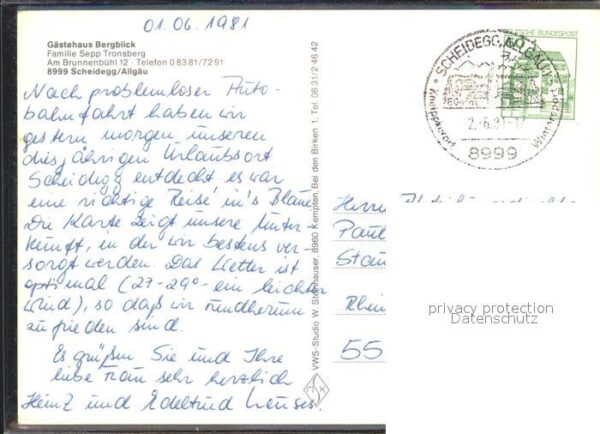 01.06.1981
Gästehaus Bergblick
Familie Sepp Tronsberg
Am Brunnenbühl 12 · Telefon 0 83 81/72 91
8999 Scheidegg/Allgäu
Nach problemloser Auto-
bahnfahrt haben wir
gestern morgen unseren
diesjährigen Urlaubsort
Scheidegg entdeckt, es war
eine richtige Reise in's Blaue.
Die Karte zeigt unsere Unter-
kunft, in der wir bestens ver-
sorgt werden. Das Wetter ist
optimal (27-29° ein leichter
Wind), so daß wir rundherum
zufrieden sind.
Es grüßen Sie und Ihre
liebe Frau sehr herzlich
Heinz und Edeltrud
VWS-Studio W. Steinhauser, 8960 Kempten, Bei den Birken 1, Tel. 08 31/2 46 42
DEUTSCHE BUNDESPOST
SCHEIDEGG, ALLGÄU
Kneippkurort
8999
Herrn
Paul
Stau
Rhein
55
privacy protection
Datenschutz